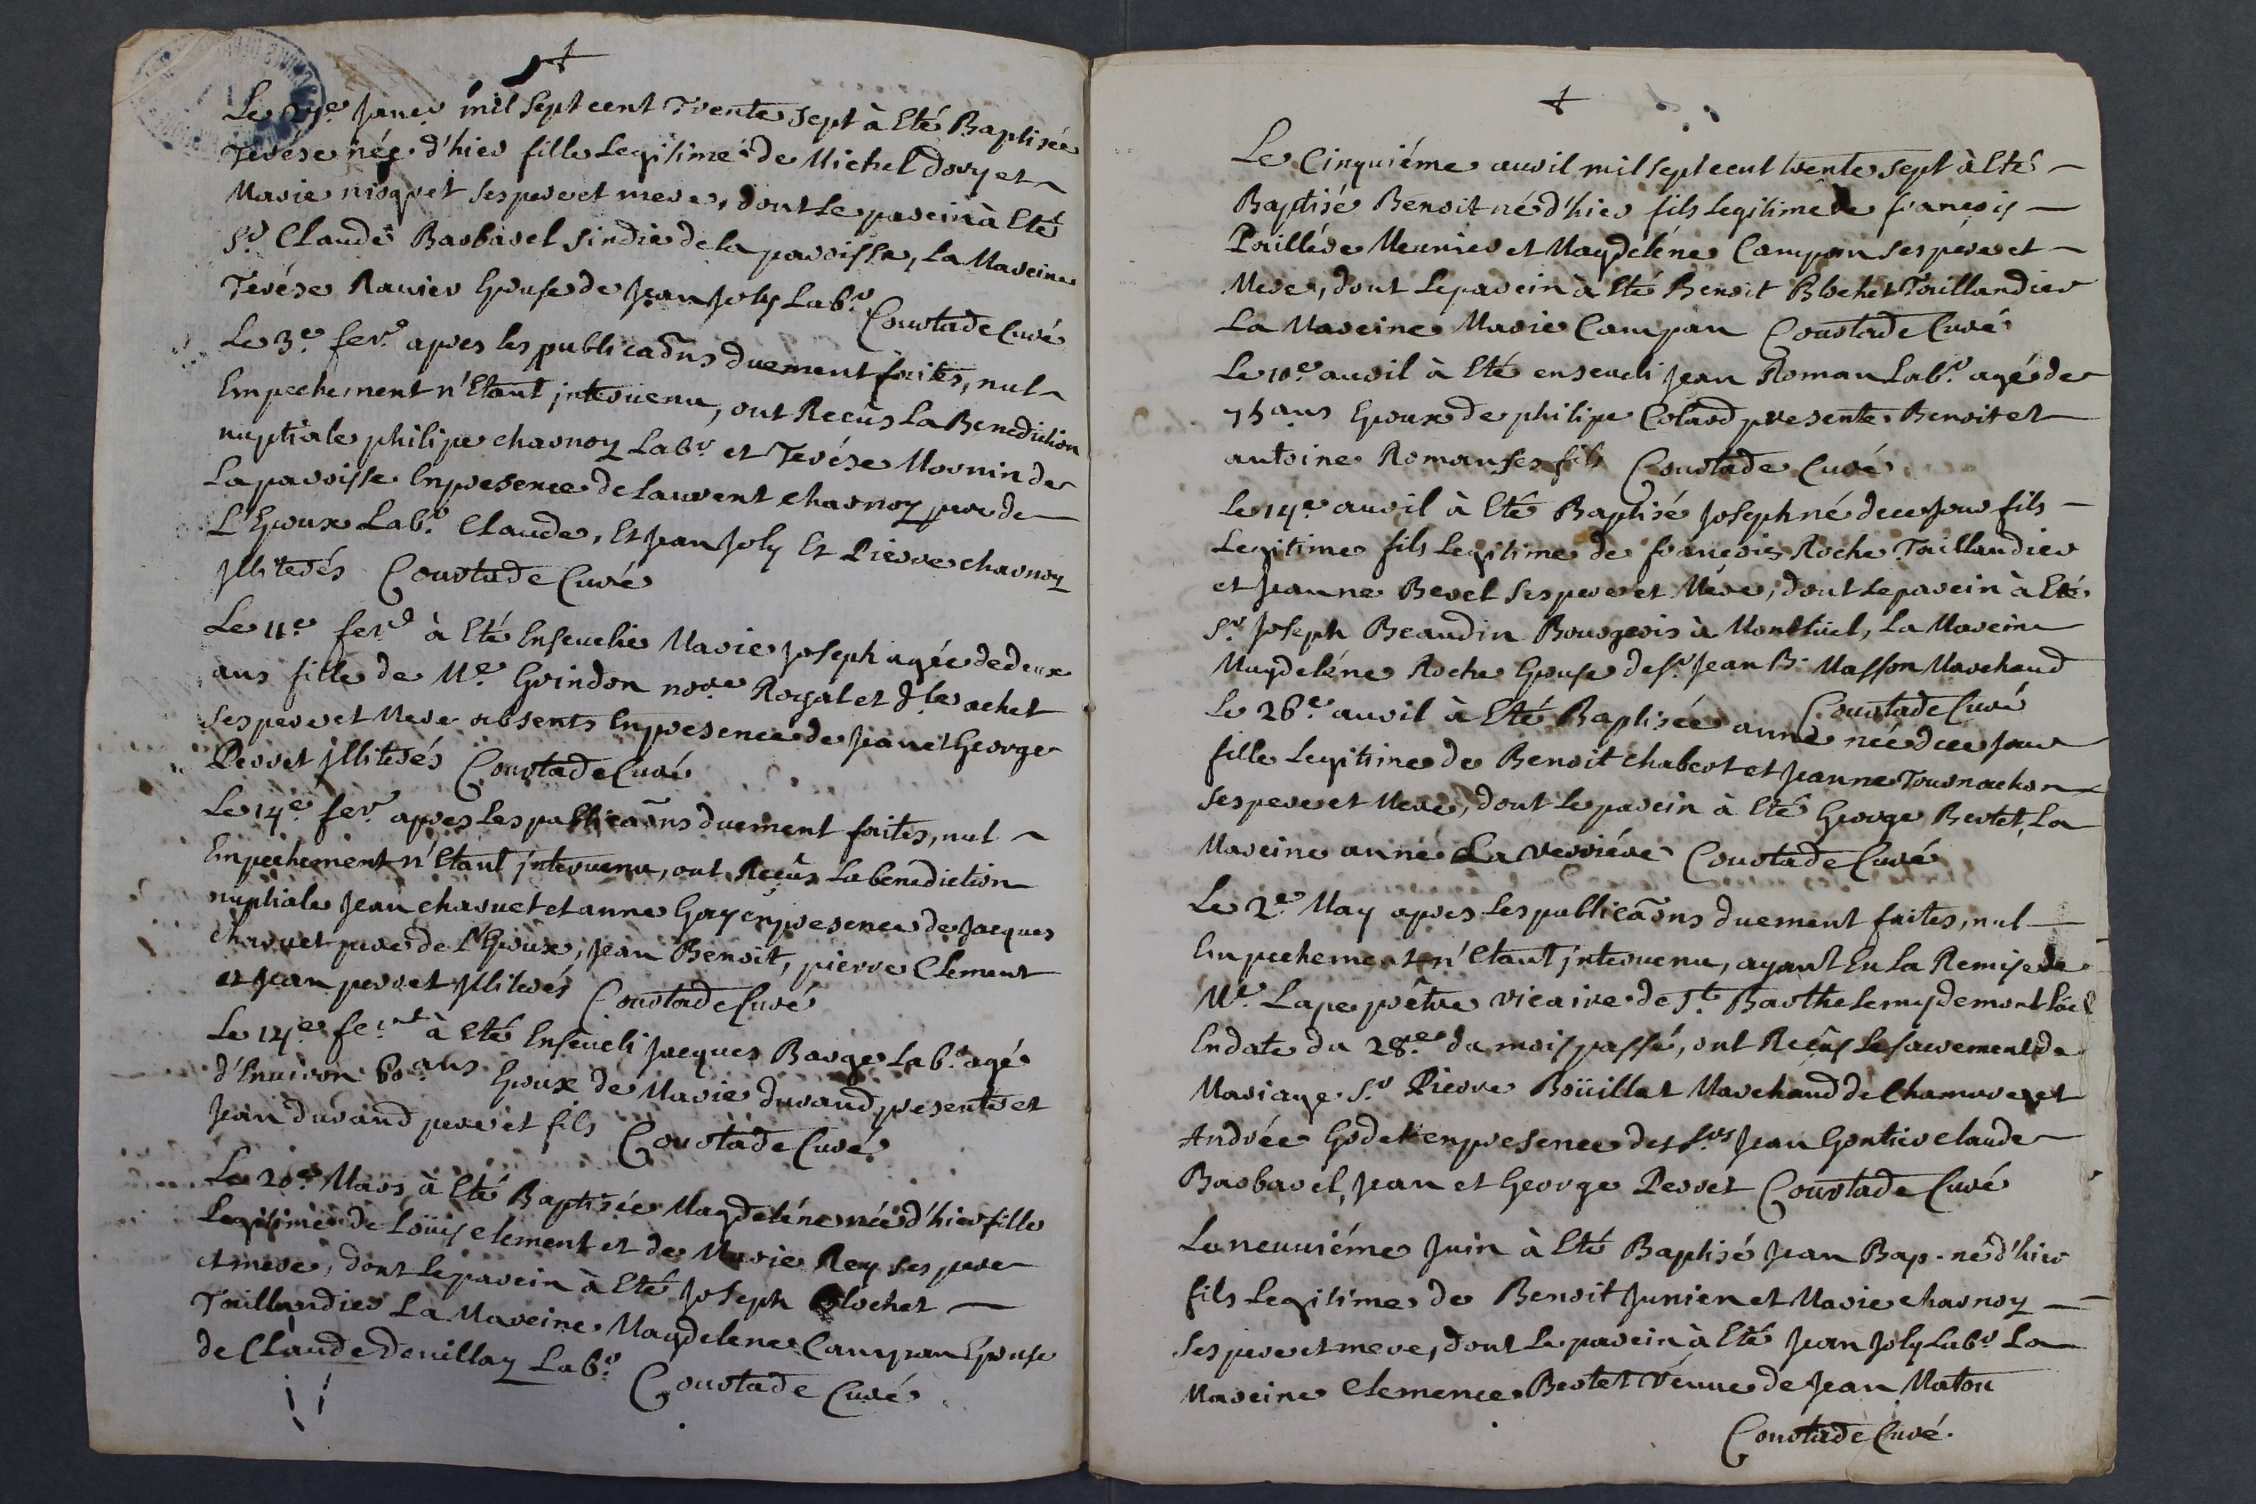 Le 27e Janer mil sept cent trente sept à Eté Baptisée
Terése née d'hier fille Legitime de Michel dory et
Marie nisquet ses pere et mere, dont le parein à Eté
Sr Claude Barbarel sindic de la paroisse, La Mareine
Terése Ravier Epouse de Jean Joly Labr. Coustade Curé
Le 3e fevr. apres les publicaõns duement faites, nul
Empechement n'Etant intervenu, ont Reçûs La Benediction
nuptiale philipe charnoy Labr et Terése Mornin de
La paroisse En presence de Laurent charnoy pere de
L'Epoux Labr. Claude, Et Jean Joly Et Pierre charnoy
Jlliterés Coustade Curé
Le 11e fevr à Eté Ensevelie Marie Joseph agée de deux
ans fille de Me Grindon nore Royal et Dlle achet
ses pere et Mere absents En presence de Jean et George
Perret Jlliterés Coustade Curé
Le 14e fevr. apres Les publicaõns duement faites, nul
Empechement n'Etant intervenu, ont Reçûs La benediction
nuptiale Jean charvet et anne Gay en presence de Jacques
charvet pere de L'Epoux, Jean Benoit, pierre Clement
et Jean perret Jlliterés Coustade Curé
Le 14e fevr à Eté Enseveli Jacques Barge Labr. agé
d'Environ 60 ans Epoux de Marie durand, presents et
Jean durand pere et fils Coustade Curé
Le 20e Mars à Eté Baptisée Magdeléne née d'hier fille
Legitime de Loüis clement et de Marie Rey ses pere
et mere, dont le parein à Eté Joseph Blochet
Taillandier La Mareine Magdelene Campan Epouse
de Claude devillay Labr. Coustade Curé
Le Cinquiéme avril mil sept cent trente sept à Eté
Baptisé Benoit né d'hier fils Legitime de françois
Paillére Meunier et Magdeléne Campan ses pére et
Mere, dont Le parein à Eté Benoit Blochet Taillandier
La Mareine Marie Campan Coustade Curé
Le 10e avril à Eté enseveli Jean Roman Labr. agé de
75 ans Epoux de philipe Colard presents Benoit et
antoine Roman ses fils Coustade Curé
Le 14e avril à Eté Baptisé Joseph né de ce Jour fils
Legitime fils Legitime de françois Roche Taillandier
et Jeanne Berel ses pere et Mére, dont Le parein à Eté
Sr Joseph Beaudin Bourgeois à Montluel, La Mareine
Magdeléne Roche Epouse de Sr. Jean B. Masson Marchand
Coustade Curé
Le 26e avril à Eté Baptisée anne née de ce Jour
fille Legitime de Benoit chabert et Jeanne Tournachon
ses pere et Mere, dont Le parein à Eté George Bertet, La
Mareine anne La verriére Coustade Curé
Le 2e May apres Les publicaõns duement faites, nul
Empechement n'Etant intervenu, ayant Eu La Remise de
Mr. Lape prêtre vicaire de St. Barthelemy de montluel
En date du 28e du mois passé, ont Reçûs Le sacrement de
Mariage Sr Pierre Boüillet Marchand de Chamure et
Andrée Godet en presence des Srs Jean Gontier claude
Barbarel, Jean et George Perret Coustade Curé
Le neuviéme Juin à Eté Baptisé Jean Bap. né d'hier
fils Legitime de Benoit Junien et Marie charnoy
ses pere et mere, dont Le parein à Eté Jean Joly Labr La
Mareine Clemence Bertet Veuve de Jean Maton
Coustade Curé.